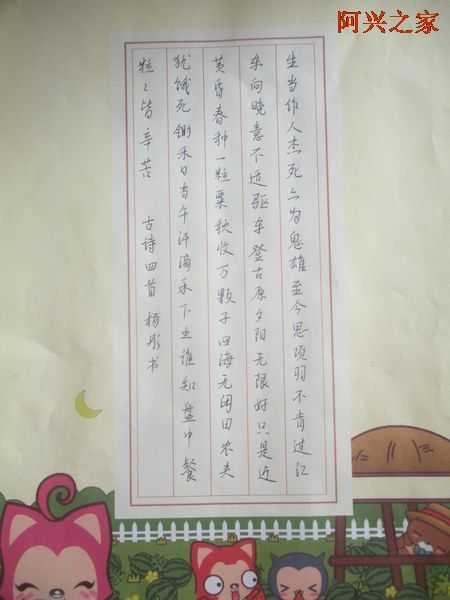 阿兴之家
生当作人杰死亦为鬼雄至今思项羽不肯过江
东向晚意不适驱车登古原夕阳无限好只是近
黄昏春种一粒粟秋收万颗子四海无闲田农夫
犹饿死锄禾日当午汗滴禾下土谁知盘中餐
粒々皆辛苦 古诗四首 杨彤书